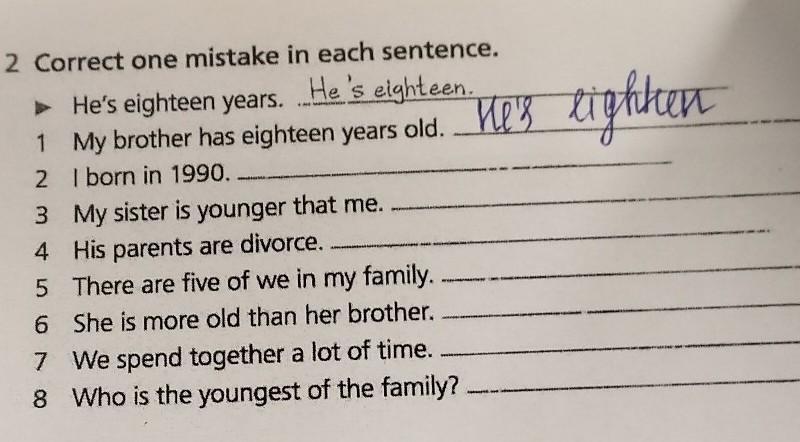 2 Correct one mistake in each sentence.
► He's eighteen years. He's eighteen.
1 My brother has eighteen years old. He's eighteen
2 I born in 1990.
3 My sister is younger that me.
4 His parents are divorce.
5 There are five of we in my family.
6 She is more old than her brother.
7 We spend together a lot of time.
8 Who is the youngest of the family?